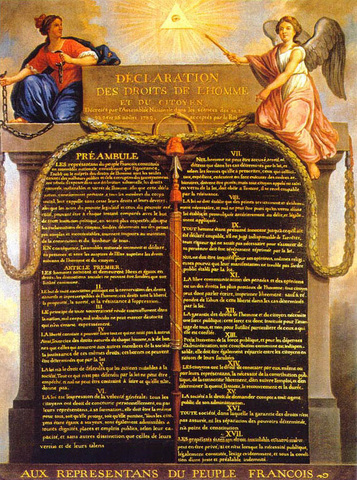 DÉCLARATION
DES DROITS DE L'HOMME
ET DU CITOYEN,
Décrétés par l'Assemblée Nationale dans les séances des 20, 21
par le Roi
PRÉAMBULE
LES représentans du peuple François constitués
en assemblée nationale, considérant que l'ignorance,
l'oubli ou le mépris des droits de l'homme sont les seules
causes des malheurs publics et de la corruption des gouvernemens
ont résolu d'exposer dans une déclaration solemnelle les droits
naturels, inaliénables et sacrés de l'homme; afin que cette déclaration,
constamment présente à tous les membres du corps
social, leur rappelle sans cesse leurs droits et leurs devoirs;
afin que les actes du pouvoir législatif et ceux du pouvoir exécutif,
pouvant être à chaque instant comparés avec le but
de toute institution politique, en soient plus respectés; afin que
les réclamations des citoyens, fondées désormais sur des principes
simples et incontestables, tournent toujours au maintien
de la constitution et du bonheur de tous.
EN conséquence, l'assemblée nationale reconnoît et déclare,
en présence et sous les auspices de l'Être suprême les droits
suivans de l'homme et du citoyen.
ARTICLE PREMIER.
LES hommes naissent et demeurent libres et égaux en
droits; les distinctions sociales ne peuvent être fondées que sur
l'utilité commune.
II.
LE but de toute association politique est la conservation des droits
naturels et imprescriptibles de l'homme; ces droits sont la liberté,
la propriété, la sureté, et la résistance à l'oppression.
III.
LE principe de toute souveraineté réside essentiellement dans
la nation, nul corps, nul individu ne peut exercer d'autorité
qui n'en émane expressément.
IV.
LA liberté consiste à pouvoir faire tout ce qui ne nuit pas à autrui
Ainsi, l'exercice des droits naturels de chaque homme, n'a de bornes
que celles qui assurent aux autres membres de la société
la jouissance de ces mêmes droits; ces bornes ne peuvent
être déterminées que par la loi.
V.
LA loi n'a le droit de défendre que les actions nuisibles à la
société. Tout ce qui n'est pas défendu par la loi ne peut être
empêché, et nul ne peut être contraint à faire ce qu'elle n'ordonne
pas.
VI.
LA loi est l'expression de la volonté générale; tous les
citoyens ont droit de concourir personnellement, ou par
leurs représentans, à sa formation; elle doit être la même
pour tous, soit qu'elle protège, soit qu'elle punisse. Tous les citoyens
étant égaux à ses yeux, sont également admissibles à
toutes dignités, places et emplois publics, selon leur capacité,
et sans autres distinctions que celles de leurs
vertus et de leurs talens.
VII.
NUL homme ne peut être accusé, arrêté ni
détenu que dans les cas déterminés par la loi, et
selon les formes qu'elle a prescrites, ceux qui sollicitent,
expédient, exécutent ou font exécuter des ordres arbitraires,
doivent être punis; mais tout citoyen appelé ou saisi
en vertu de la loi, doit obéir à l'instant, il se rend coupable
par la résistance.
VIII.
LA loi ne doit établir que des peines strictement et évidemment
nécessaires, et nul ne peut être puni qu'en vertu d'une loi
établie et promulguée antérieurement au délit, et légalement
appliquée.
IX.
TOUT homme étant présumé innocent jusqu'à ce qu'il ait
été déclaré coupable, s'il est jugé indispensable de l'arrêter,
toute rigueur qui ne seroit pas nécessaire pour s'assurer de
sa personne doit être sévèrement réprimée par la loi.
X.
NUL ne doit être inquiété pour ses opinions, mêmes religieuses
pourvu que leur manifestation ne trouble pas l'ordre
public établi par la loi.
XI.
LA libre communication des pensées et des opinions
est un des droits les plus précieux de l'homme; tout citoyen
peut donc parler, écrire, imprimer librement sauf à répondre
de l'abus de cette liberté dans les cas déterminés
par la loi.
XII.
LA garantie des droits de l'homme et du citoyen nécessite
une force publique; cette force est donc instituée pour l'avantage
de tous, et non pour l'utilité particulière de ceux à
qui elle est confiée.
XIII.
POUR l'entretien de la force publique, et pour les dépenses
d'administration, une contribution commune est indispensable;
elle doit être également répartie entre les citoyens en
raison de leurs facultés.
XIV.
LES citoyens ont le droit de constater par eux mêmes ou
par leurs représentans, la nécessité de la contribution publique,
de la consentir librement, d'en suivre l'emploi, et d'en
déterminer la quotité, l'assiette, le recouvrement et la durée.
XV.
LA société a le droit de demander compte à tout agent
public de son administration.
XVI.
TOUTE société, dans laquelle la garantie des droits n'est
pas assurée, ni la séparation des pouvoirs déterminée,
n'a point de constitution.
XVII.
LES propriétés étant un droit inviolable et sacré, nul ne
peut en être privé, si ce n'est lorsque la nécessité publique,
légalement constatée, l'exige évidemment, et sous la condition
d'une juste et préalable indemnité.
AUX REPRESENTANS DU PEUPLE FRANCOIS